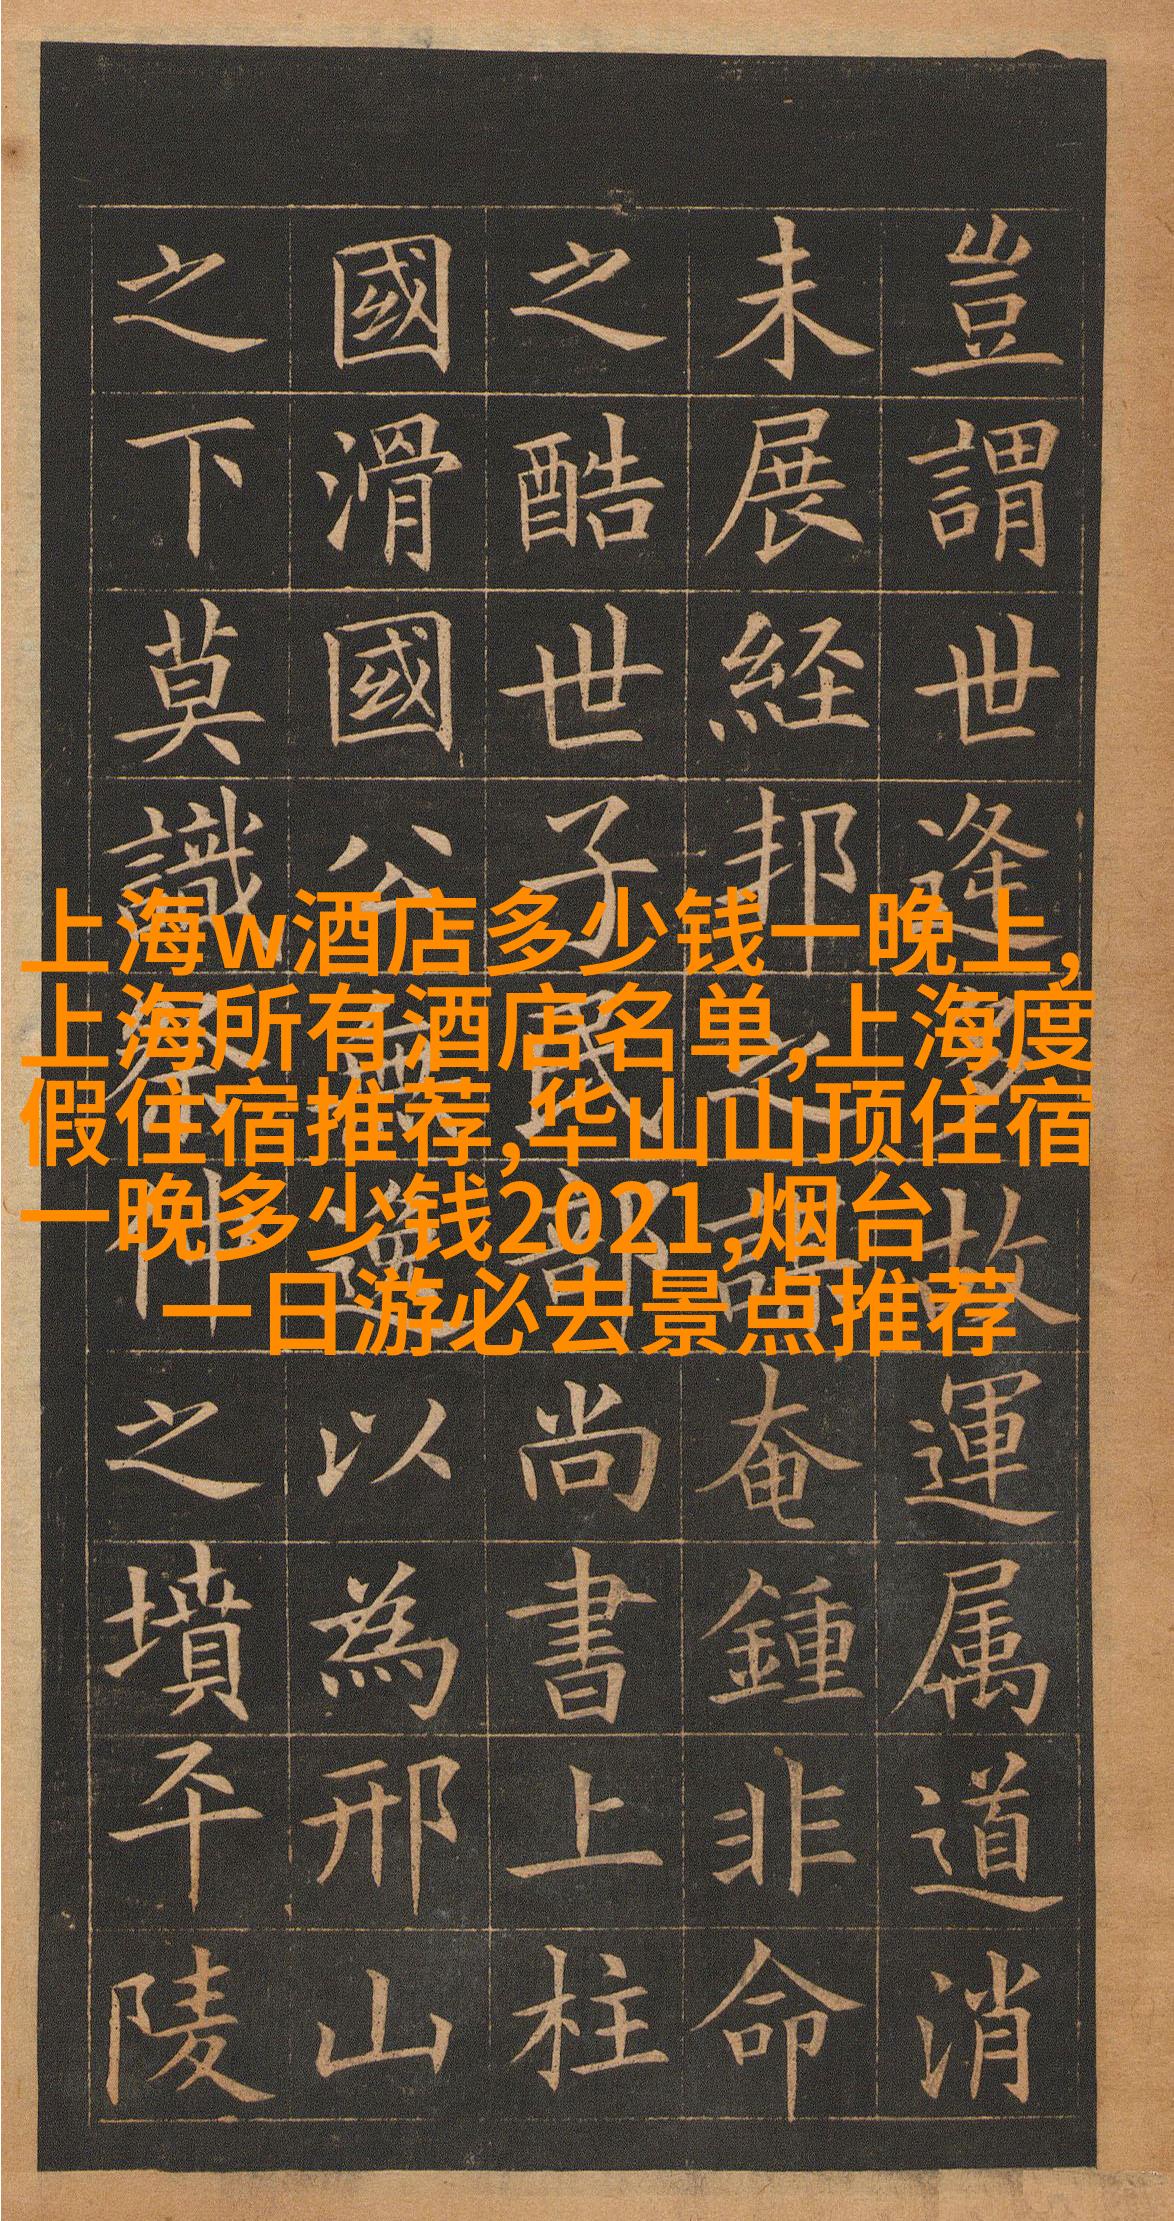 豈謂世逢多故運属道消
未展經邦之謀奄鍾非命
之酷世子民部尚書上柱
國滑國公無逸以為邢山
之下莫識祭仲之墳平陵
上海w酒店多少钱一晚上,
上海所有酒店名单,上海度
假住宿推荐,华山山顶住宿
一晚多少钱2021,烟台
一日游必去景点推荐